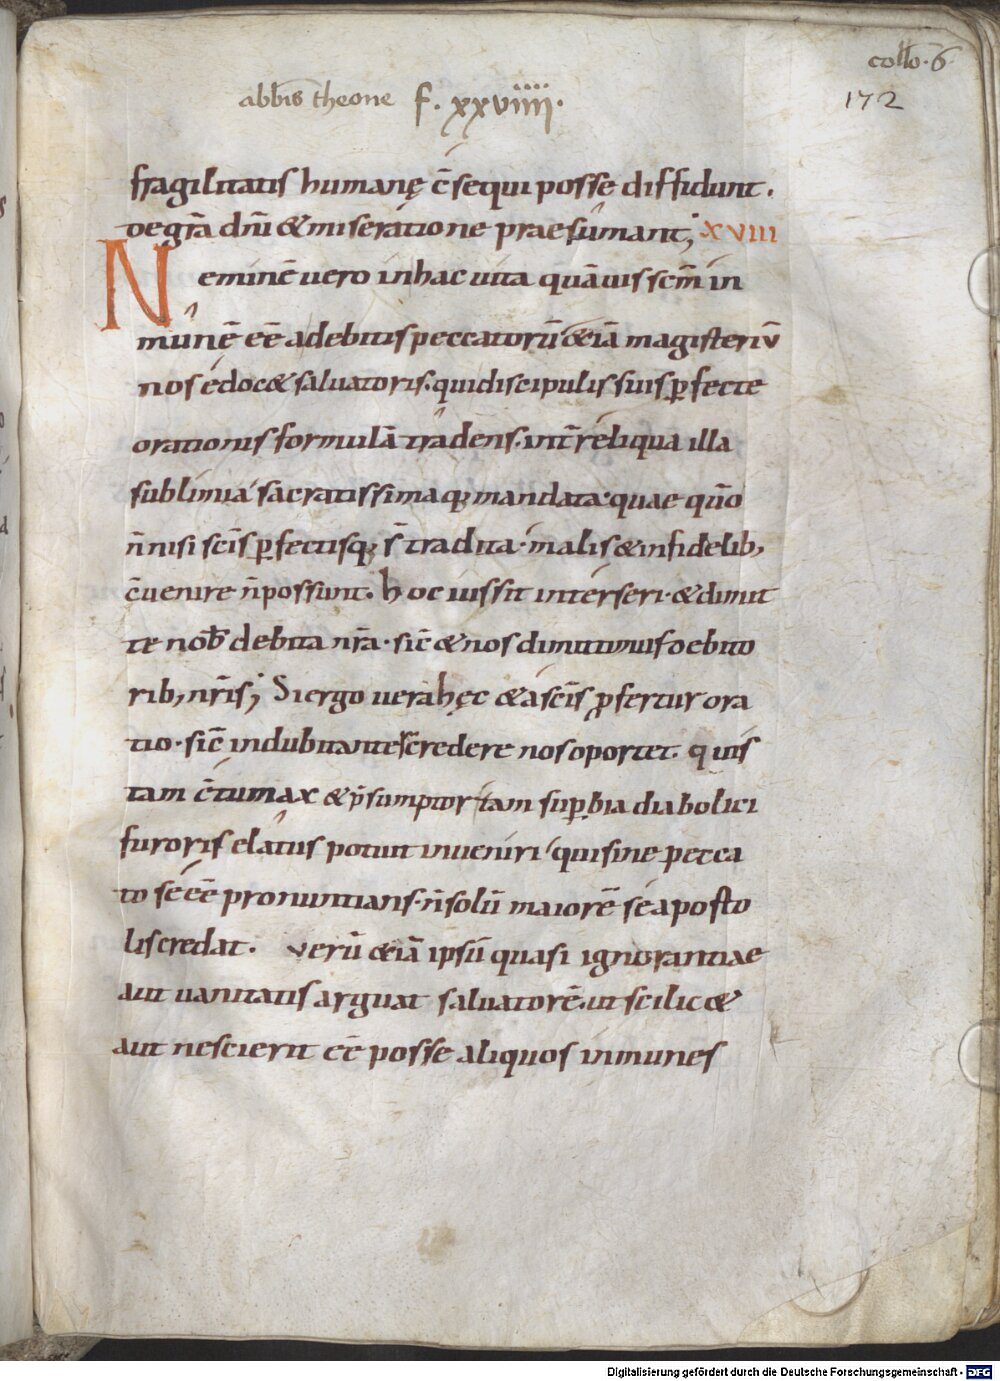 collo. 6
172
abbis theone f. xxviiii.
fragilitatis humanę c̄sequi posse diffidunt.
de gr̄a dn̄i & miseratione praesumant; XVIII
Neminē vero in hac uita quāuis sc̄m in
munē eē a debitis peccatorū &iā magisteriū
nos edoc& saluatoris. qui discipulis suis ꝑfecte
orationis formulā tradens. int̄ reliqua illa
sublimia sacratissimaq; mandata quae qūo
n̄ nisi sc̄is ꝑfectisq; s̄ tradita. malis & infidelib;
c̄uenire n̄ possunt. hoc iussit interseri. & dimit
te nob̄ debita nr̄a. sic̄ & nos dimittimus debito
rib; nr̄is; Si ergo uera hęc & a sc̄is ꝓfertur ora
tio. sic̄ indubitantes credere nos oportet. quis
tam c̄tumax & p̄sumptor tam suꝑbia diabolici
furoris elatus potuit inueniri qui sine pecca
to se eē pronuntians. n̄ solū maiorē se aposto
lis credat. Verū &iā ipsū quasi ignorantiae
aut uanitatis arguat saluatorē. ut scilic&
aut nescierit eē posse aliquos inmunes
Digitalisierung gefördert durch die Deutsche Forschungsgemeinschaft - DFG